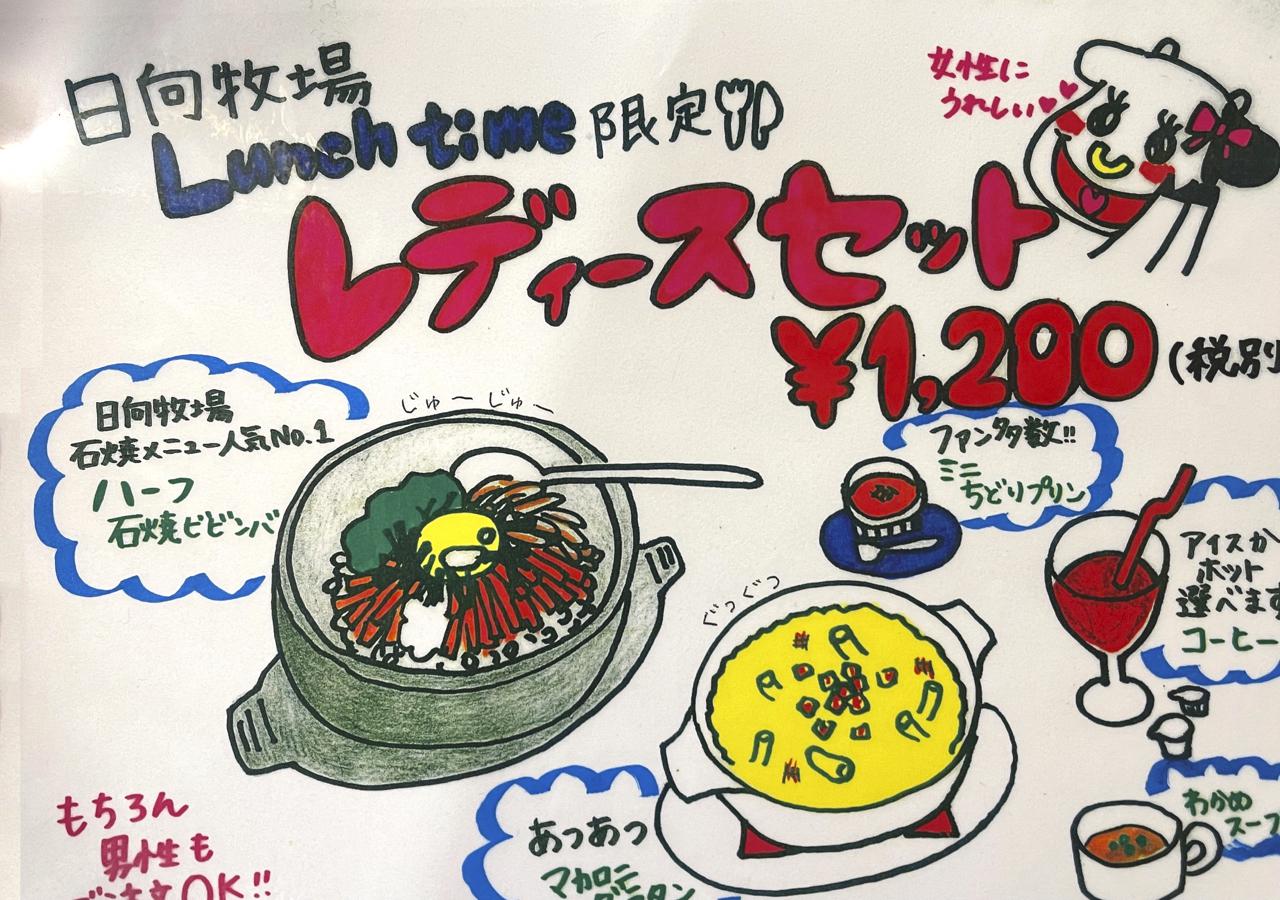 日向牧場
Lunch time 限定
女性に
うれしい
レディースセット
¥1,200 (税別
日向牧場
石焼メニュー人気No.1
ハーフ
石焼ビビンバ
じゅーじゅー
ファン多数!!
ミニ
ちどりプリン
アイスか
ホット
選べます
コーヒー
ぐつぐつ
あつあつ
マカロニ
グラタン
わかめ
スープ
もちろん
男性も
ご注文OK!!